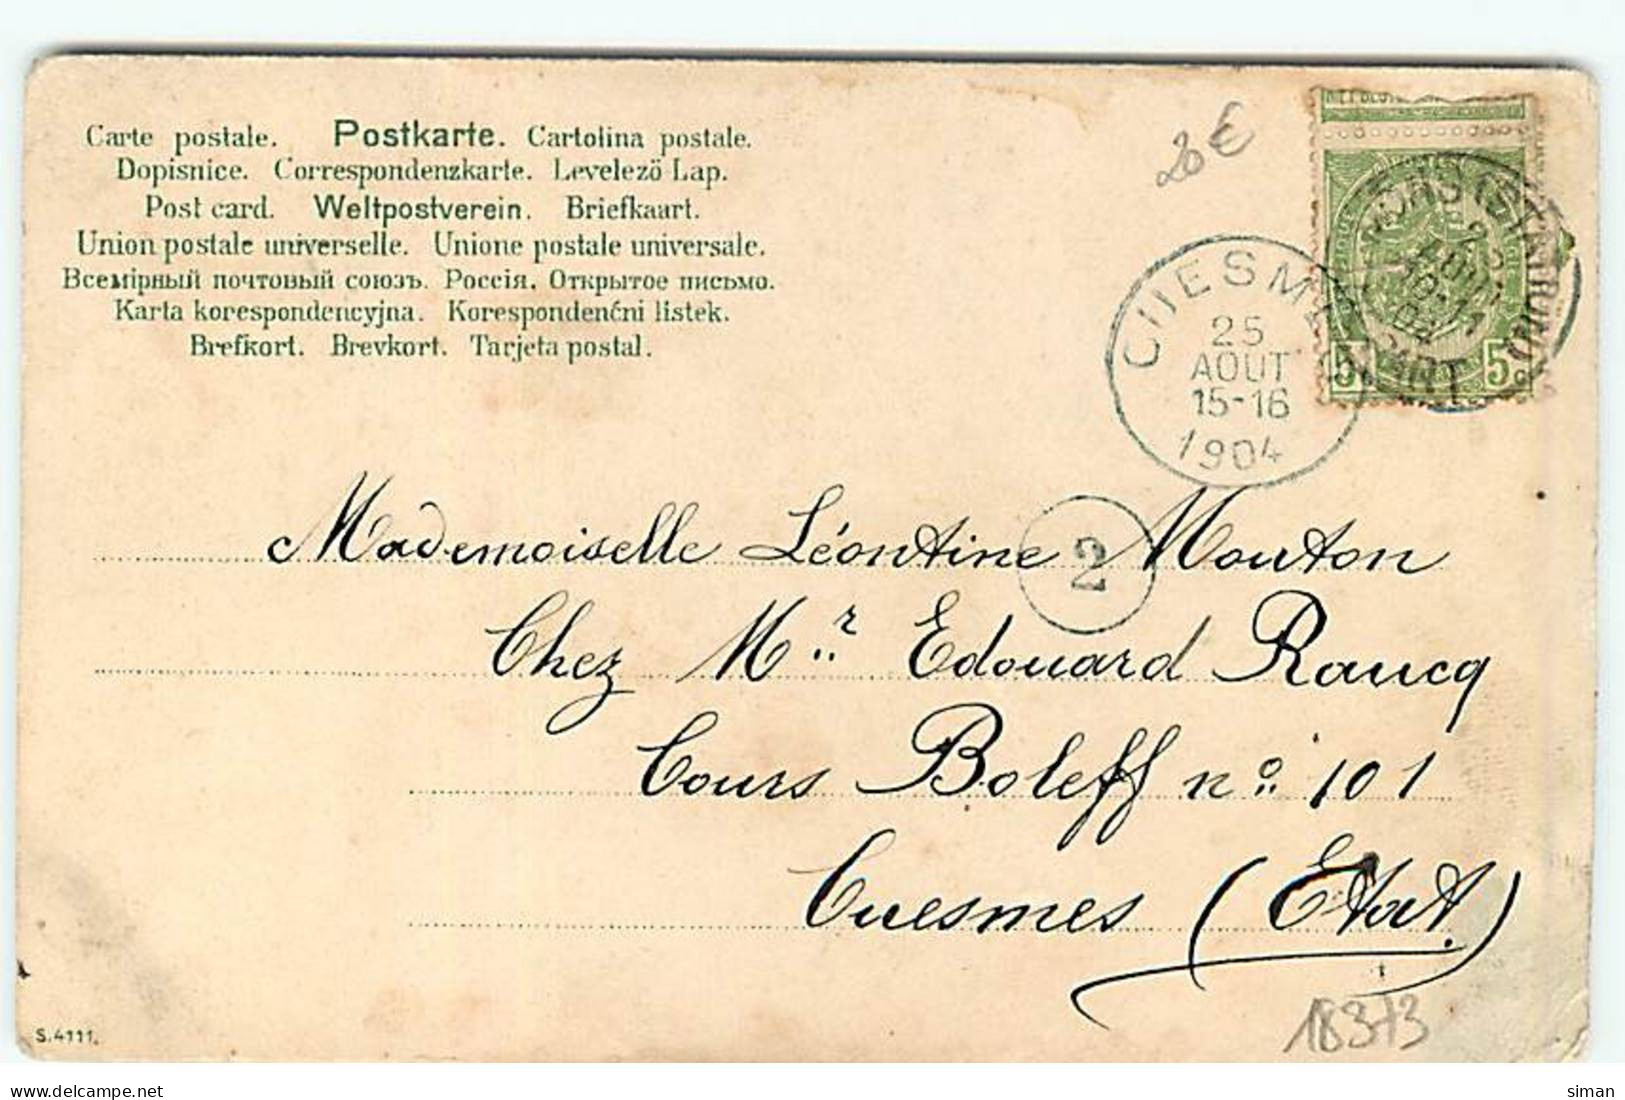 Carte postale. Postkarte. Cartolina postale.
Dopisnice. Correspondenzkarte. Levelező Lap.
Post card. Weltpostverein. Briefkaart.
Union postale universelle. Unione postale universale.
Всемірный почтовый союзъ. Россія. Открытое письмо.
Karta korespondencyjna. Korespondenčni listek.
Brefkort. Brevkort. Tarjeta postal.
20€
CUESMES
25
AOUT
15-16
1904
MONS (STATION)
DEPART
5 5c
2
Mademoiselle Léontine Mouton
Chez Mr. Edouard Raucq
Cours Boleff no. 101
Cuesmes (Etat.)
S.4111.
18373
siman